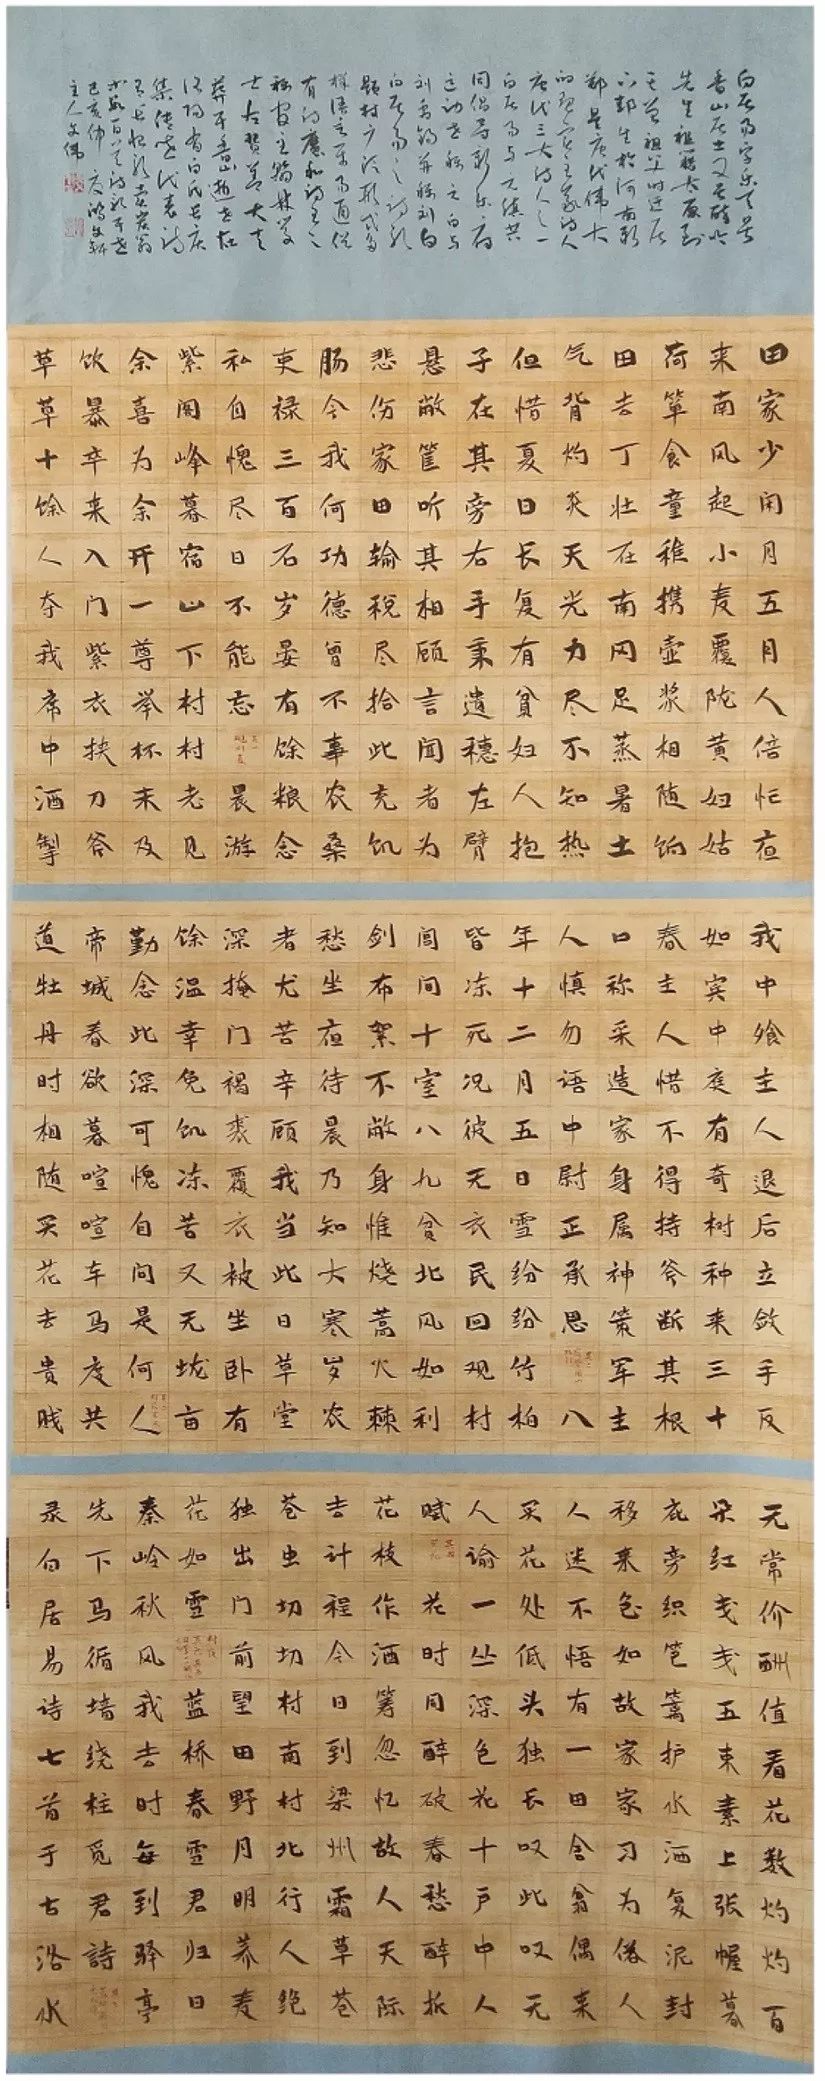 白居易字乐天号
香山居士又号醉吟
先生祖籍太原到
其曾祖父时迁居
下邽生於河南新
郑是唐代伟大
的现实主义诗人
唐代三大诗人之一
白居易与元稹共
同倡导新乐府
运动世称元白与
刘禹锡并称刘白
白居易之诗歌
题材广泛形式多
样语言平易通俗
有诗魔和诗王之
称官至翰林学
士左赞善大夫
葬于香山逝世在
洛阳有白氏长庆
集传世代表诗
有长恨歌卖炭翁
己亥仲夏鸿文轩
主人文伟
田家少闲月五月人倍忙夜
来南风起小麦覆陇黄妇姑
荷箪食童稚携壶浆相随饷
田去丁壮在南冈足蒸暑土
气背灼炎天光力尽不知热
但惜夏日长复有贫妇人抱
子在其旁右手秉遗穗左臂
悬敝筐听其相顾言闻者为
悲伤家田输税尽拾此充饥
肠今我何功德曾不事农桑
吏禄三百石岁晏有馀粮念
私自愧尽日不能忘 晨游
紫阁峰暮宿山下村村老见
余喜为余开一尊举杯未及
饮暴卒来入门紫衣挟刀斧
草草十馀人夺我席中酒掣
我中飧主人退后立敛手反
如宾中庭有奇树种来三十
春主人惜不得持斧断其根
口称采造家身属神策军主
人慎勿语中尉正承恩 八
年十二月五日雪纷纷竹柏
皆冻死况彼无衣民回观村
闾间十室八九贫北风如利
剑布絮不敝身惟烧蒿火棘
愁坐夜待晨乃知大寒岁农
者尤苦辛顾我当此日草堂
深掩门褐裘覆衣被坐卧有
馀温幸免饥冻苦又无垅亩
勤念此深可愧自问是何人
帝城春欲暮喧喧车马度共
道牡丹时相随买花去贵贱
无常价酬值看花数灼灼百
朵红戋戋五束素上张幄幕
庇旁织笆篱护水洒复泥封
移来色如故家家习为俗人
人迷不悟有一田舍翁偶来
买花处低头独长叹此叹无
人谕一丛深色花十户中人
赋 花时同醉破春愁醉折
花枝作酒筹忽忆故人天际
去计程今日到梁州霜草苍
苍虫切切村南村北行人绝
独出门前望田野月明荞麦
花如雪 蓝桥春雪君归日
秦岭秋风我去时每到驿亭
先下马循墙绕柱觅君詩
录白居易诗七首于古洛水